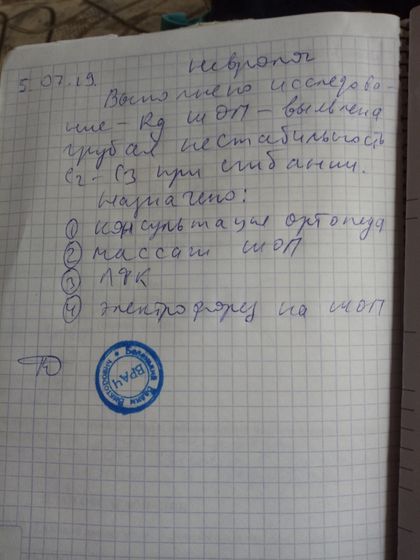 невролог
5.07.19.
Выполнено исследова-
ние - Rg ШОП - выявлена
грубая нестабильность
C2 - C3 при сгибании.
Назначено:
① консультация ортопеда
② массаж ШОП
③ ЛФК
④ электрофорез на ШОП
ВРАЧ
Викторович